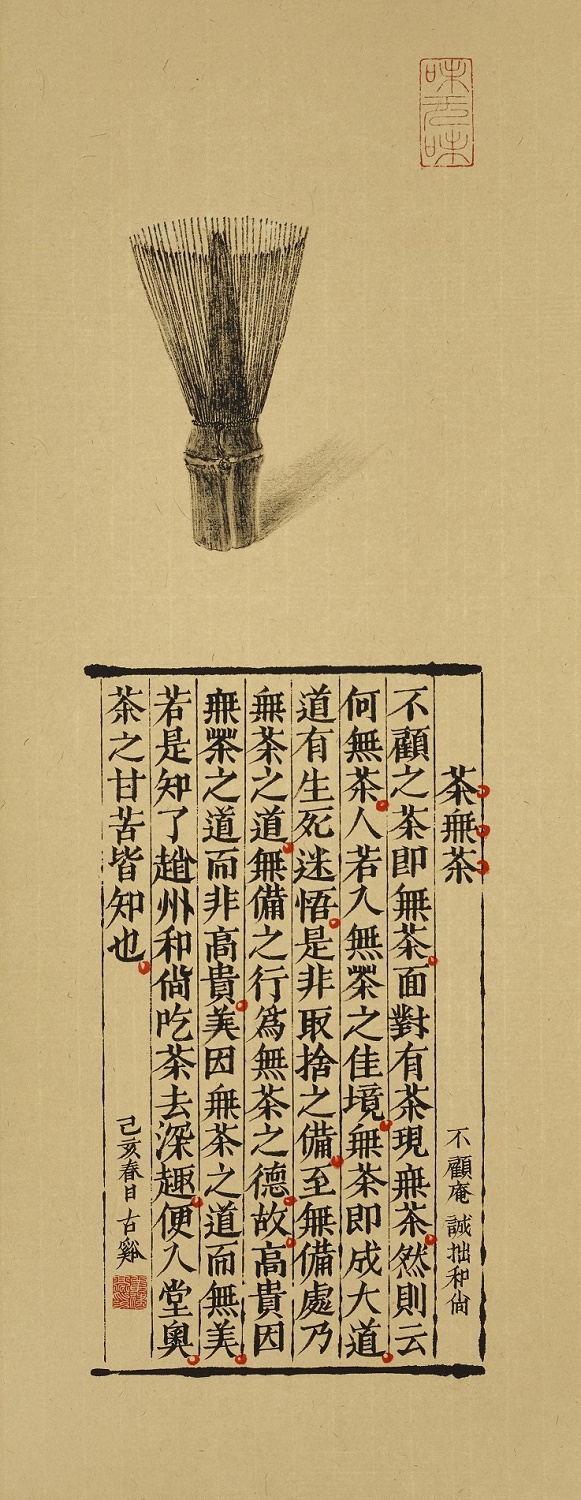 味无味
茶無茶
不顧庵 誠拙和尙
不顧之茶即無茶面對有茶現無茶然則云
何無茶人若入無茶之佳境無茶即成大道
道有生死迷悟是非取捨之備至無備處乃
無茶之道無備之行爲無茶之德故高貴因
無茶之道而非高貴美因無茶之道而無美
若是知了趙州和尙吃茶去深趣便入堂奧
茶之甘苦皆知也
己亥春日 古谿